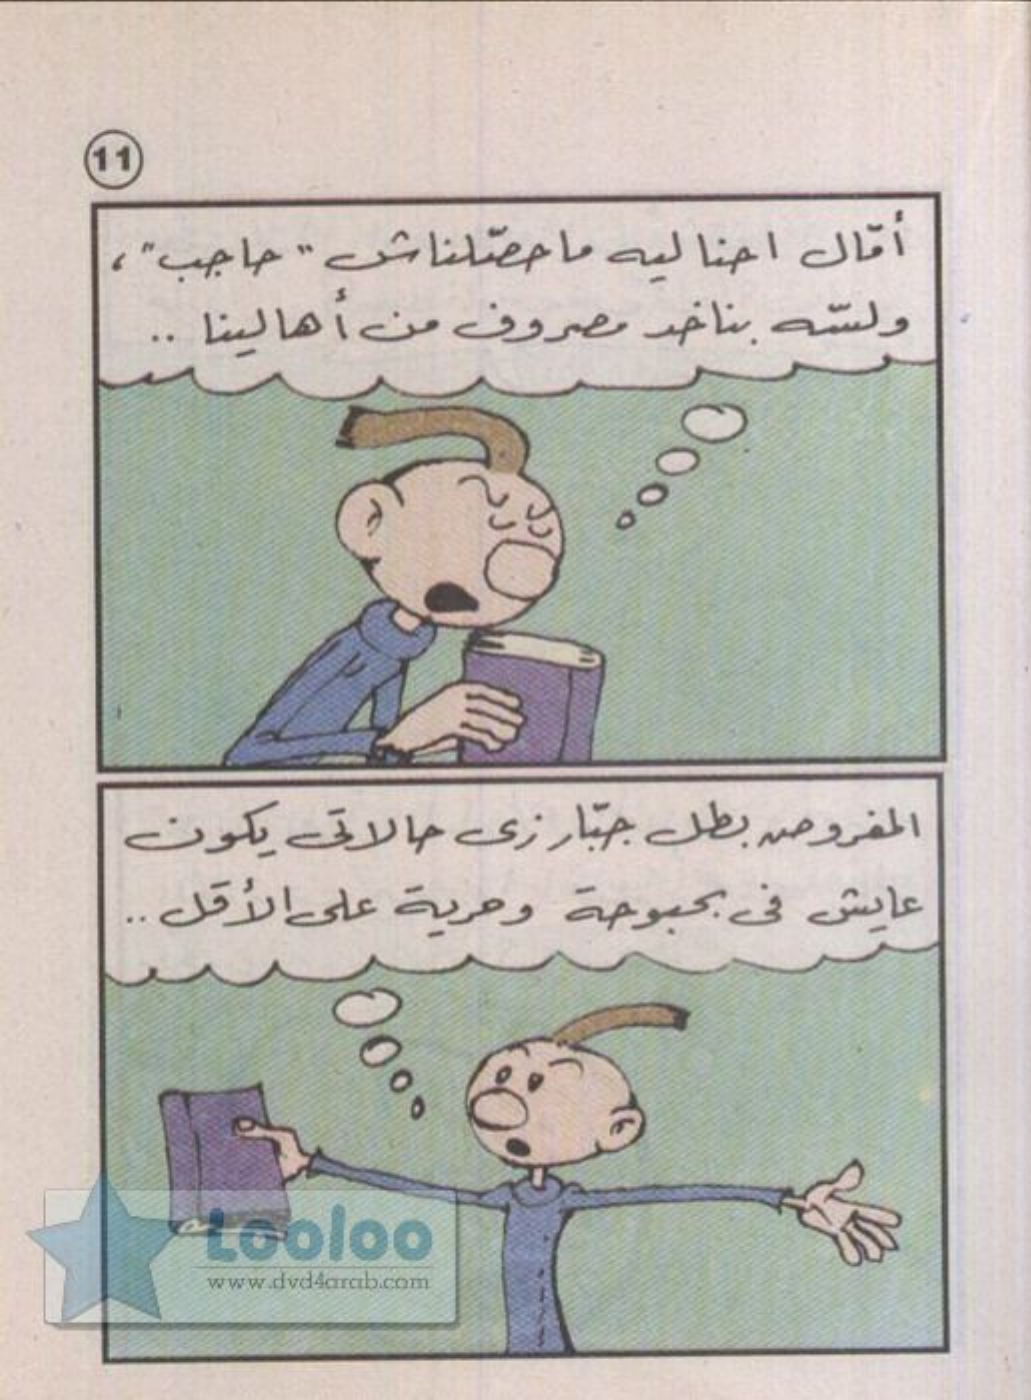 11
أمّال احنا ليه ما حصّلناش "حاجب"،
ولسّه بناخد مصروف من أهالينا ..
المفروض بطل جبّار زى حالاتى يكون
عايش فى بحبوحة وحرية على الأقل ..
Looloo
www.dvd4arab.com